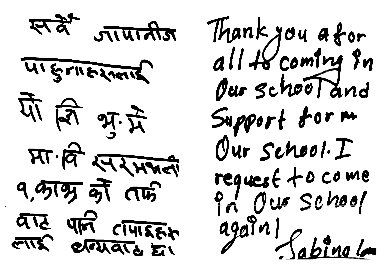 सर्वै जापानीज
पाहुनाहरूलाई
यो श्री भु. मे
मा. वि
१, को तर्फ
बाट पनि तपाइहरू
लाई धन्यवाद छ।
Thank you a for
all to coming in
Our School and
Support form
Our School. I
request to come
in Our School
again!